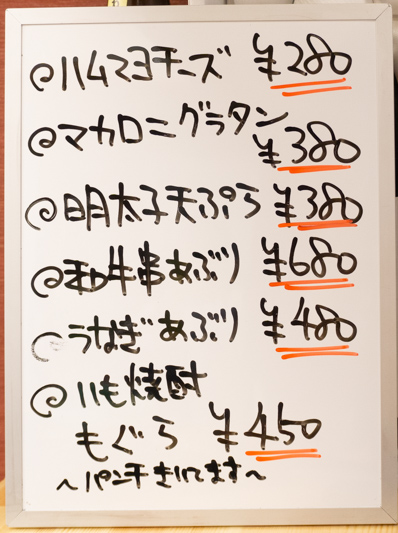 @ハムマヨチーズ ¥280
@マカロニグラタン ¥380
@明太子天ぷら ¥380
@和牛串あぶり ¥680
@うなぎあぶり ¥480
@いも焼酎
もぐら ¥450
～パンチきいてます～